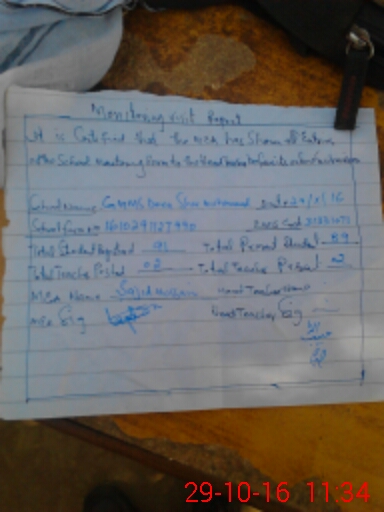 Monitoring visit Report
It is Certified that the MEA has Shown all Entries
of the School monitoring form to the Head
School Name GBMMS Dara Sher muhammad Date 29/X/16
School Form No 1610291127990
Total Student Registered 91 Total Present Student 89
Total Teacher Posted 02 Total Teacher Present 02
MEA Name Sajid Hussain Head Teacher Name
MEA Sig Head Teacher Sig
29-10-16 11:34